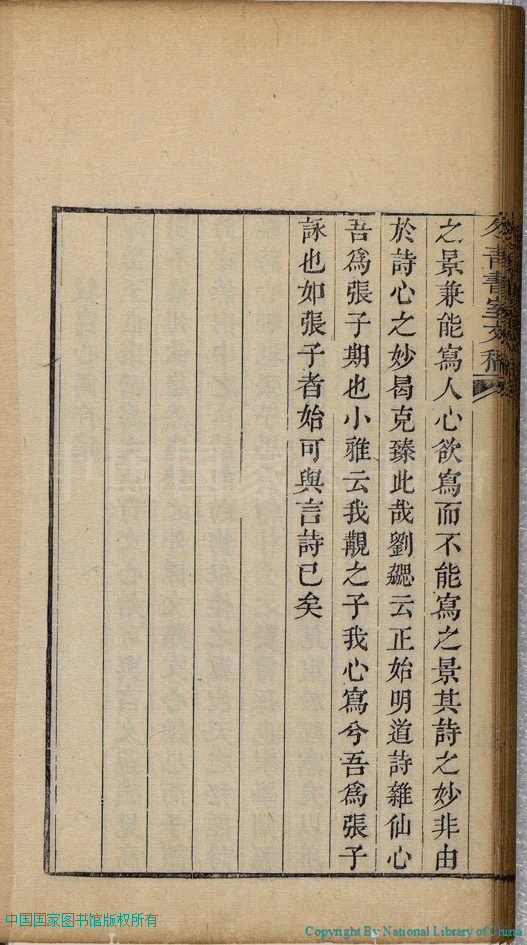 之景兼能寫人心欲寫而不能寫之景其詩之妙非由
於詩心之妙曷克臻此哉劉勰云正始明道詩雜仙心
吾為張子期也小雅云我覯之子我心寫兮吾為張子
詠也如張子者始可與言詩已矣
中国国家图书馆版权所有
Copyright By National Library of China